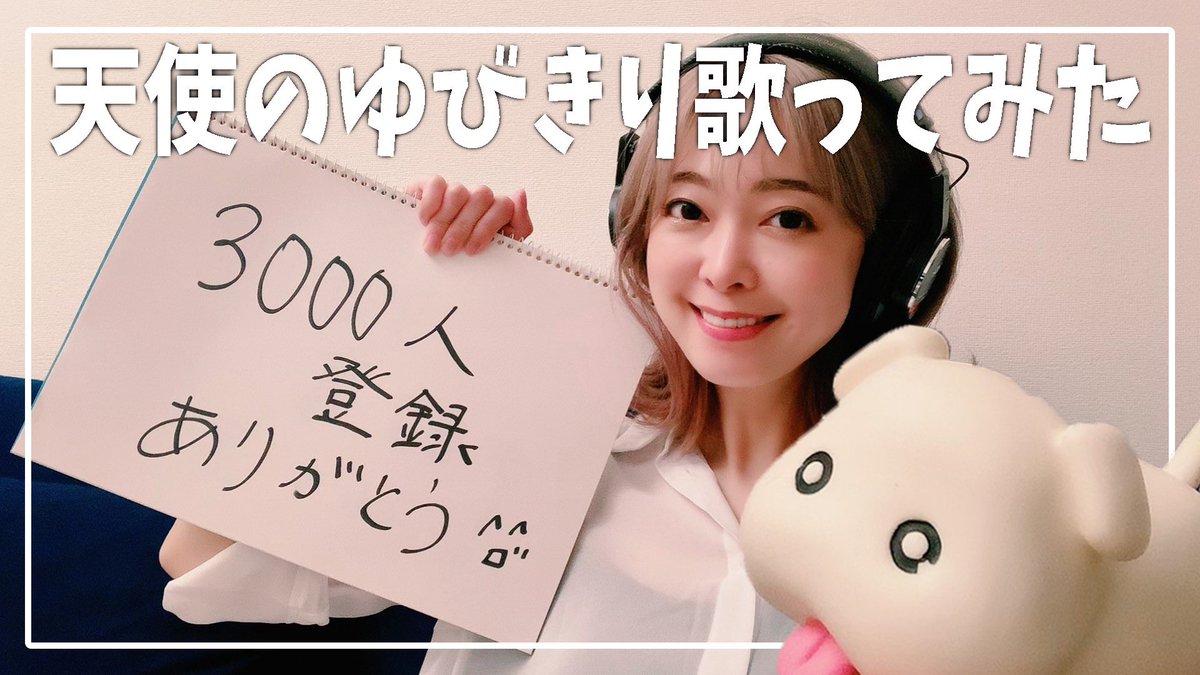 天使のゆびきり歌ってみた
3000人
登録
ありがとう